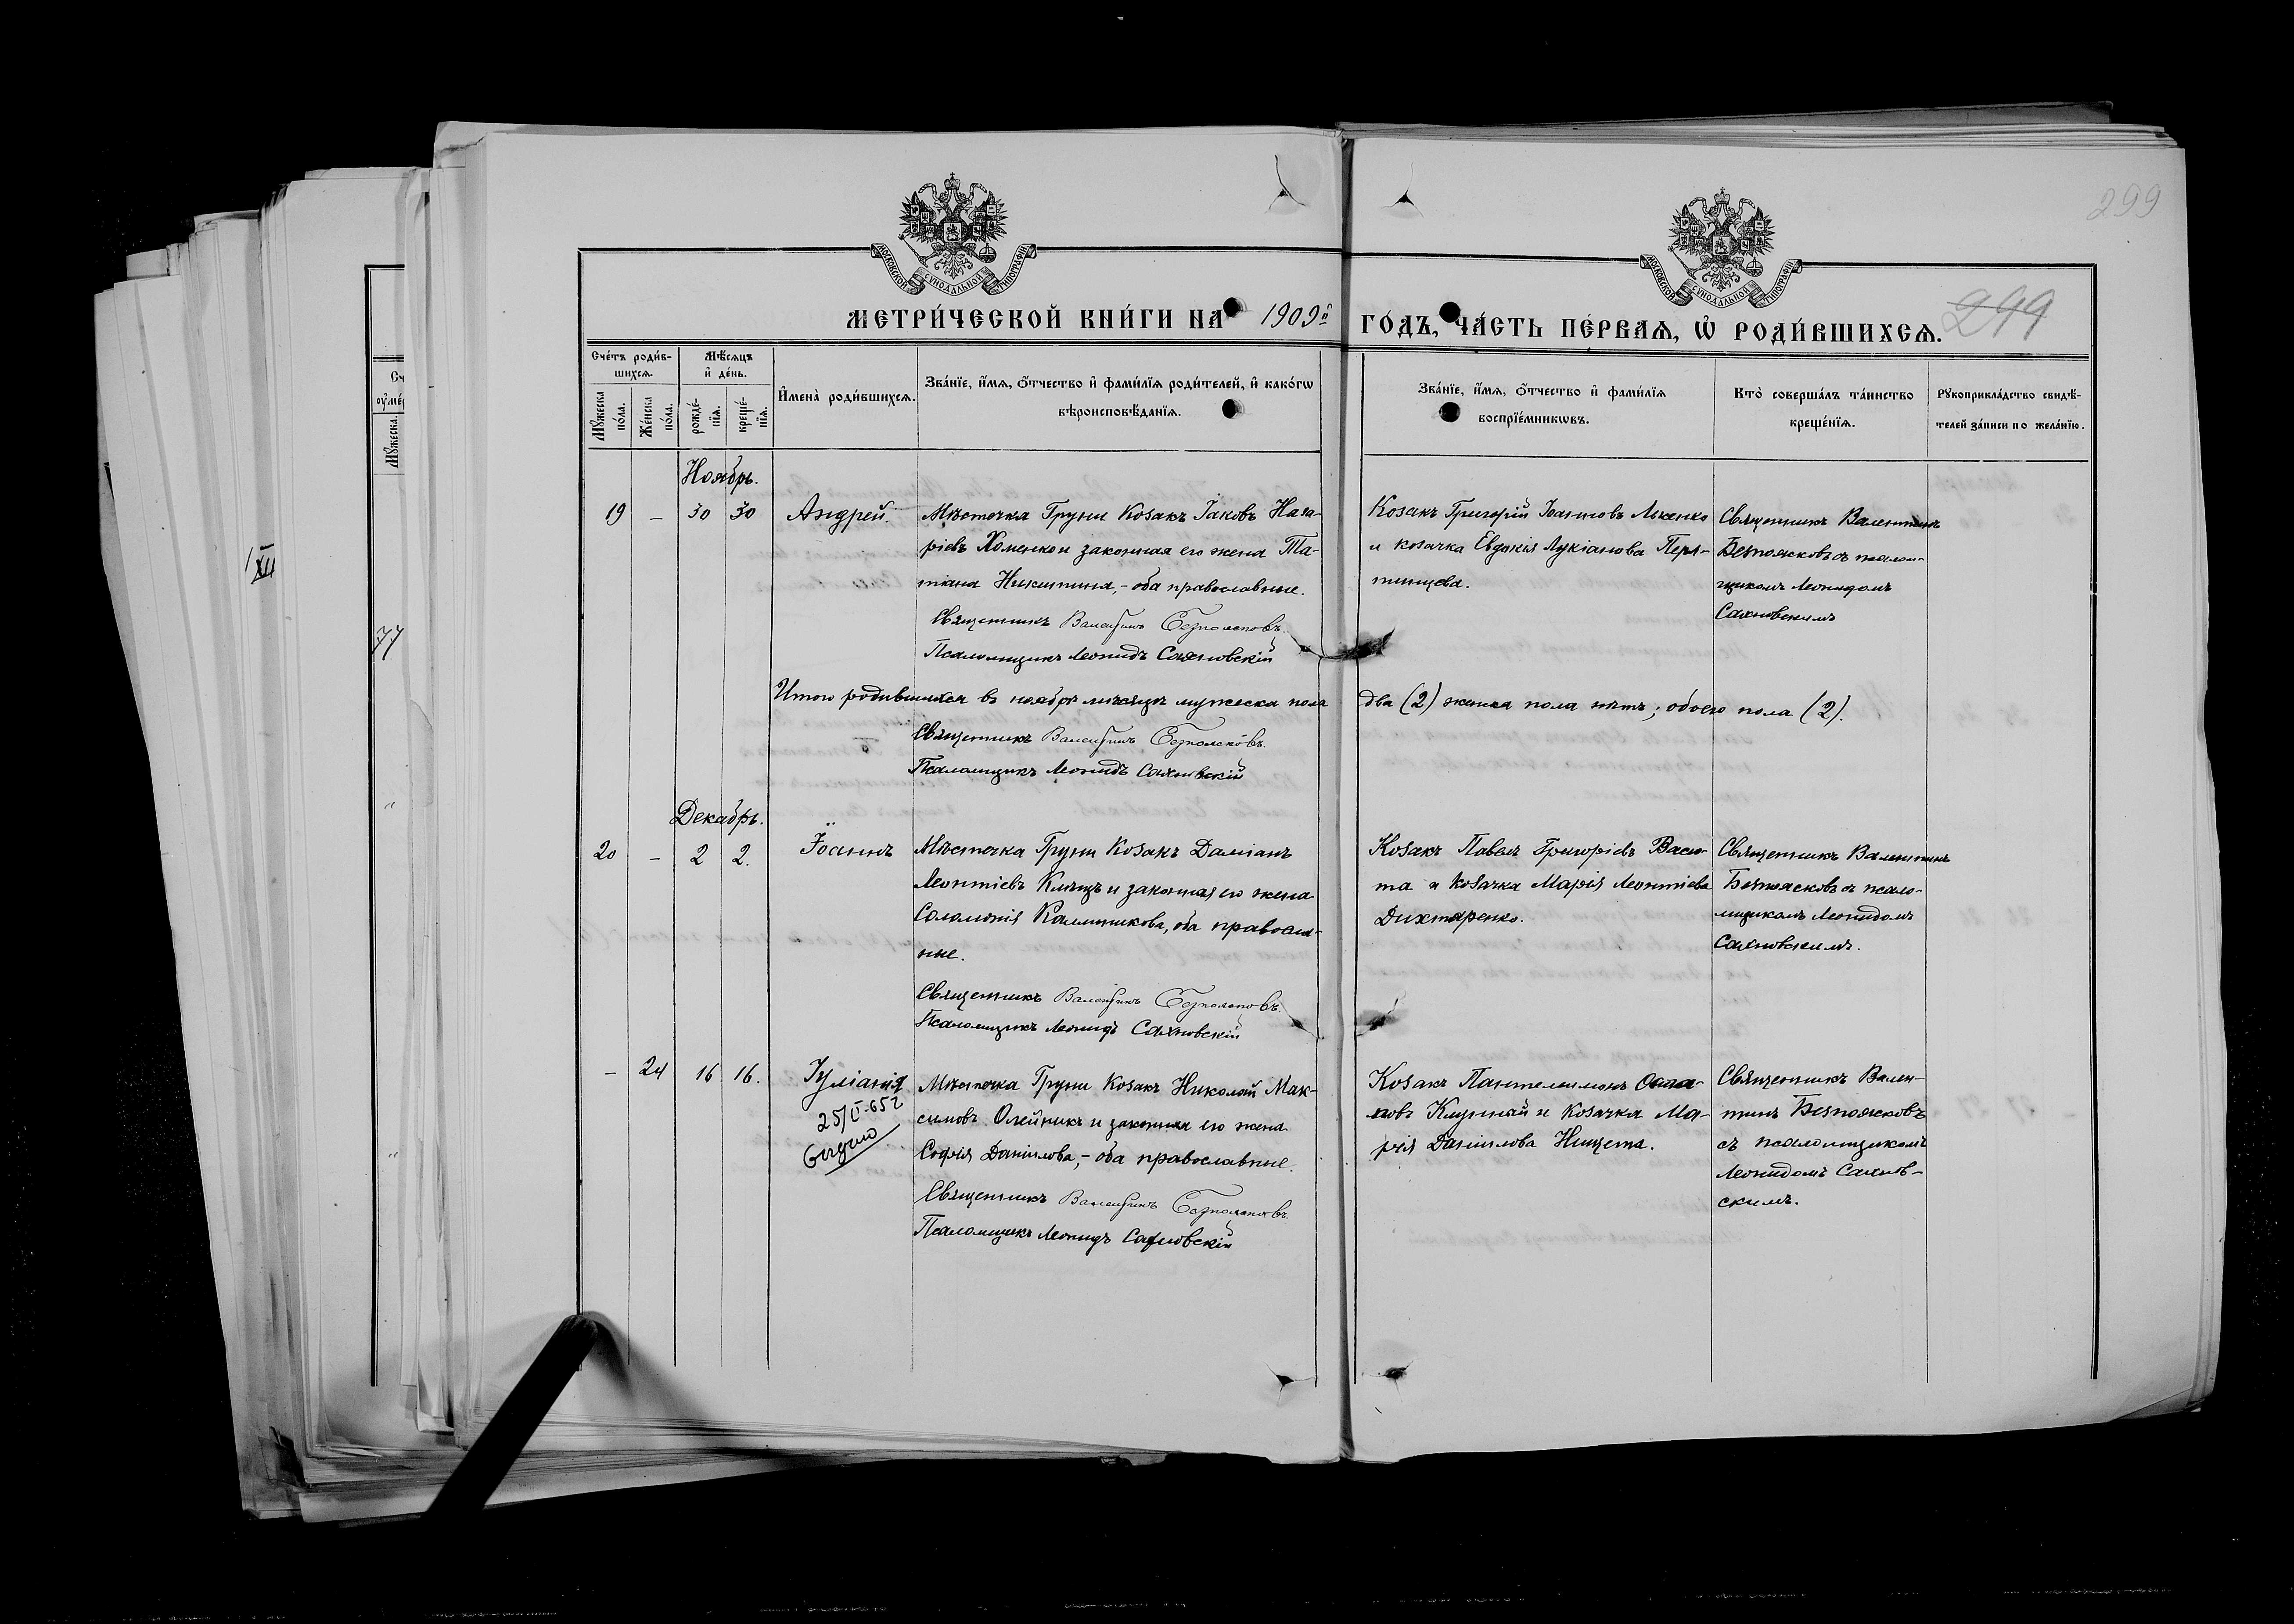 299
МОСКОВСКОЙ СѴНОДАЛЬНОЙ ТИПОГРАФІИ
МОСКОВСКОЙ СѴНОДАЛЬНОЙ ТИПОГРАФІИ
МЕТРИ́ЧЕСКОЙ КНИ́ГИ НА 1909й ГО́ДЪ, ЧА́СТЬ ПЕ́РВАЯ, Ѡ РОДИ́ВШИХСЯ. 299
Сче́тъ роди́в-
шихся.
Мꙋжеска по́ла.
Же́нска по́ла.
Мѣ́сяцъ
и҆ де́нь.
рожде́-
нїя.
креще́-
нїя.
И҆мена̀ роди́вшихся.
Зва́нїе, и҆́мя, ѻ҆́тчество и҆ фами́лїя роди́телей, и҆ како́гѡ
вѣроисповѣ́данїя.
Зва́нїе, и҆́мя, ѻ҆́тчество и҆ фами́лїя
воспрїе́мникѡвъ.
Кто̀ соверша́лъ та́инство
креще́нїя.
Рꙋкоприкла́дство свидѣ́-
телей за́писи по жела́нїю.
Ноябрь.
19 — 30 30 Андрей.
Мѣстечка Груни Козакъ Іаковъ Наза-
ріевъ Хоменко и законная его жена Та-
тіана Никитина, – оба православные.
Священникъ Валентинъ Безпоясковъ
Псаломщикъ Леонидъ Сахновскій
Козакъ Григорій Іоанновъ
и козачка Евдокія Лукіанова Перя-
тинцева.
Священникъ Валентинъ
Безпоясковъ съ псалом-
щикомъ Леонидомъ
Сахновскимъ
Итого родившихся въ ноябрѣ месяцѣ мужеска пола два (2) женска пола нѣтъ; обоего пола (2).
Священникъ Валентинъ Безпоясковъ.
Псаломщикъ Леонидъ Сахновскій
Декабрь.
20 — 2 2. Іоаннъ
Мѣстечка Груни Козакъ Даміанъ
Леонтіевъ и законная его жена
Соломонія Калинникова, оба православ-
ные.
Священникъ Валентинъ Безпоясковъ.
Псаломщикъ Леонидъ Сахновскій
Козакъ Павелъ Григоріевъ Васю-
та и козачка Марія Леонтіева
Дихтяренко.
Священникъ Валентинъ
Безпоясковъ съ псало-
мщикомъ Леонидомъ
Сахновскимъ.
— 24 16 16. Іуліанія
Мѣстечка Груни Козакъ Николай Мак-
симовъ Олейникъ и законная его жена
Софія Даніилова, – оба православные.
Священникъ Валентинъ Безпоясковъ.
Псаломщикъ Леонидъ Сахновскій
Козакъ Пантелеимонъ
и Козачка Ма-
рія Даніилова Нищета.
Священникъ Вален-
тинъ Безпоясковъ
съ псаломщикомъ
Леонидомъ Сахнов-
скимъ.
1/XII
77
Мꙋжеска